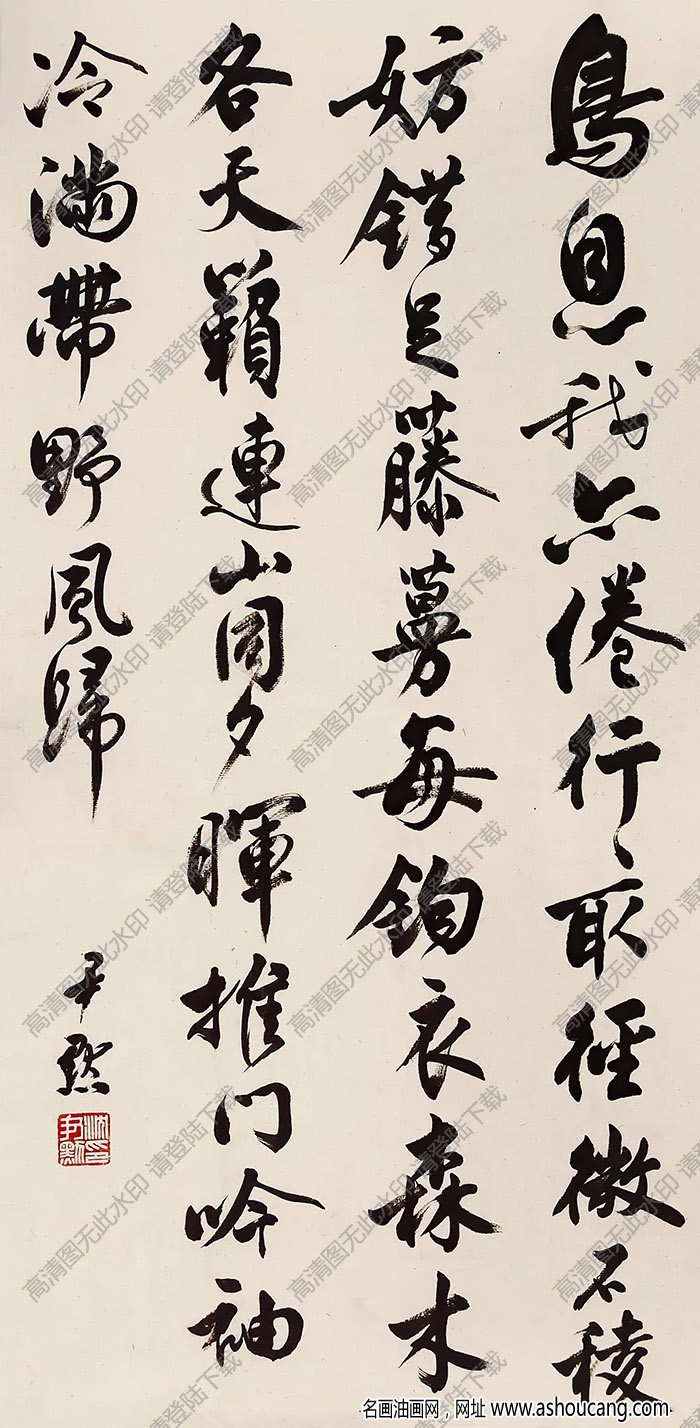 鳥息我亦倦行〻取徑微石稜
妨錯足藤蔓每鉤衣森木
各天籟連山同夕暉推門吟袖
冷滿帶野風歸
尹默
沈尹默印
高清图无此水印 请登陆下载
名画油画网，网址 www.ashoucang.com